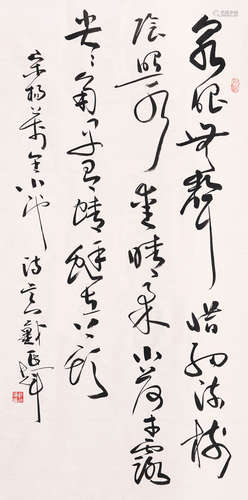 泉眼無聲惜細流樹
陰照水愛晴柔小荷才露
尖尖角早有蜻蜓立上頭
宋楊萬里小池詩